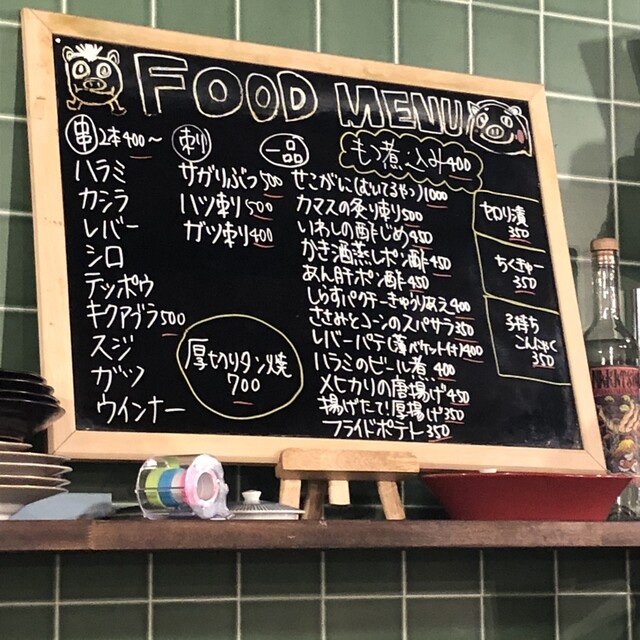 FOOD MENU
串 2本400～
ハラミ
カシラ
レバー
シロ
テッポウ
キクアブラ500
スジ
ガツ
ウインナー
刺
サガリぶつ500
ハツ刺り500
ガツ刺り400
厚切りタン焼
700
一品
もつ煮込み400
せこがに(むいてるやつ)1000
カマスの炙り刺500
いわしの酢じめ450
かき酒蒸しポン酢450
あん肝ポン酢450
しらすパクチーきゅうりあえ400
ささみとコーンのスパサラ350
レバーパテ(薄バケット付)400
ハラミのビール煮400
メヒカリの唐揚げ450
揚げたて!厚揚げ350
フライドポテト350
セロリ漬
350
ちくきゅー
350
子持ち
こんにゃく
350